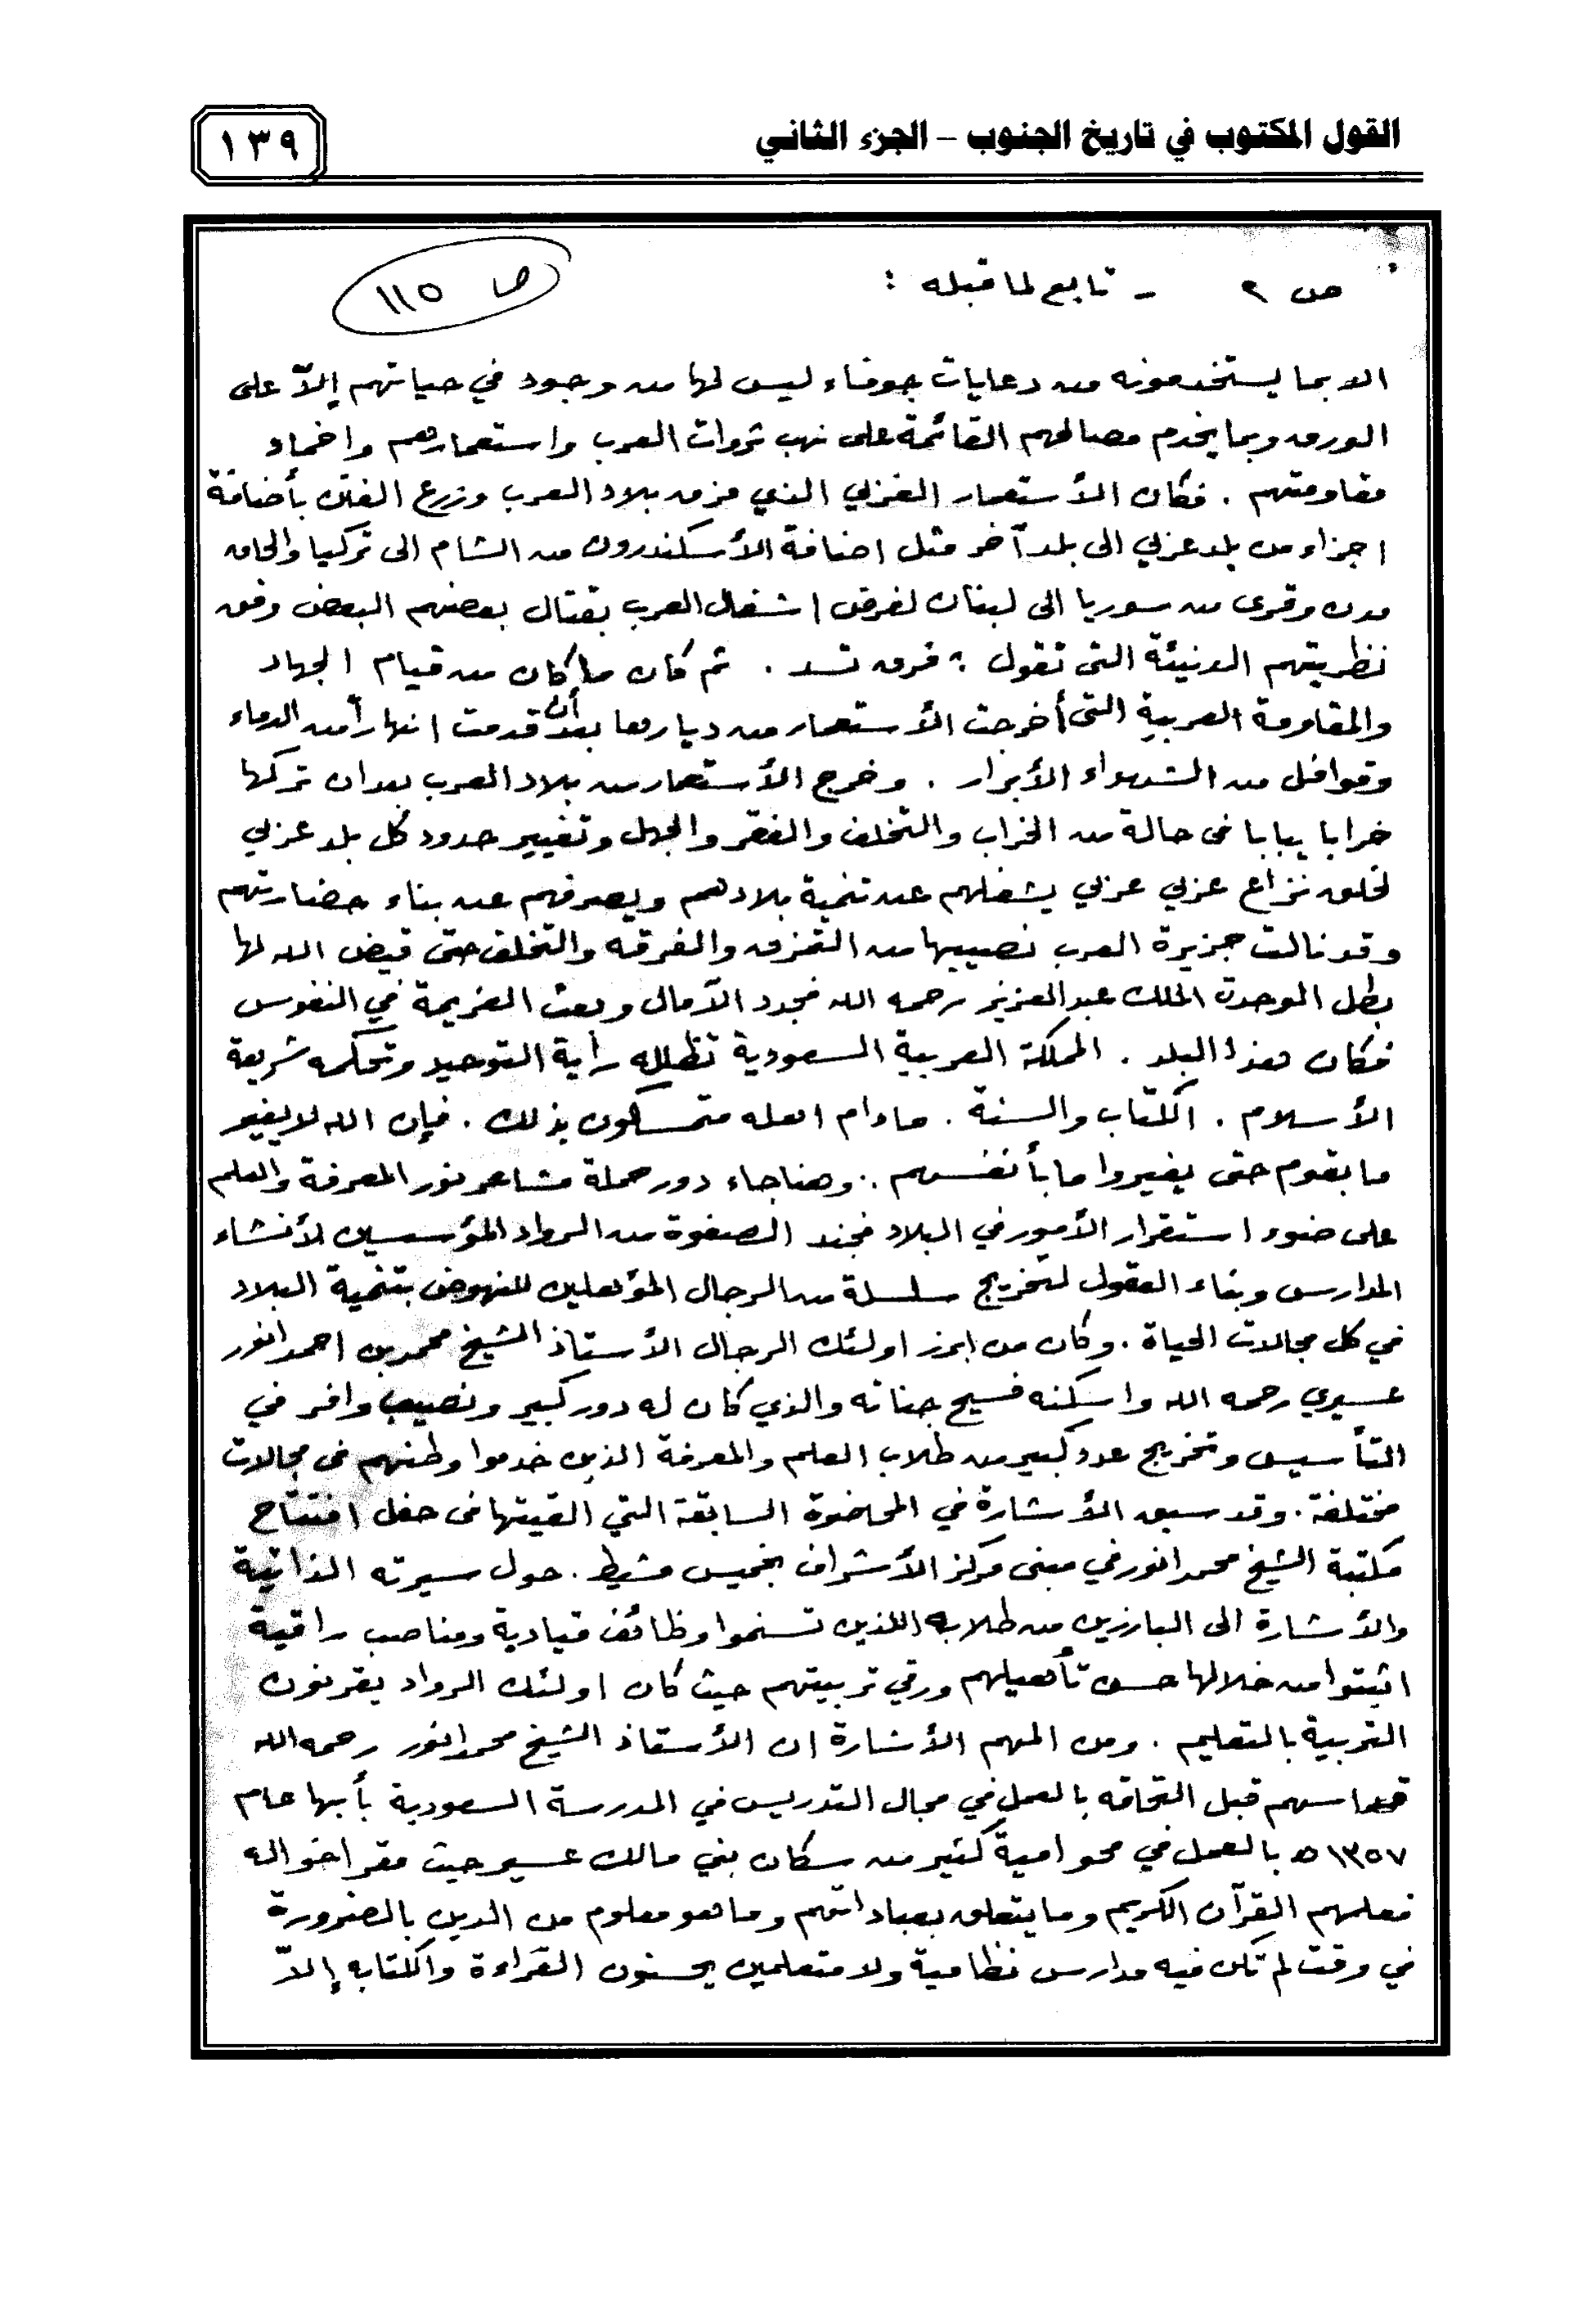 القول المكتوب في تاريخ الجنوب – الجزء الثاني
١٣٩
ص ٢ - تابع لما قبله :
ص ١١٥
الا بما يستخدمونه من دعايات جوفاء ليس لها من وجود في حياتهم إلاّ على
الورق وبما يخدم مصالحهم القائمة على نهب ثروات العرب واستعمارهم واخماد
مقاومتهم . فكان الأستعمار الغربي الذي مزق بلاد العرب وزرع الفتن بأضافة
اجزاء من بلد عربي الى بلد آخر مثل اضافة الأسكندرون من الشام الى تركيا والحاق
مدن وقرى من سوريا الى لبنان لغرض اشغال العرب بقتال بعضهم البعض وفق
نظريتهم الدنيئة التي تقول : فرق تسد . ثم كان ما كان من قيام الجهاد
والمقاومة العربية التي أخرجت الأستعمار من ديارها بعد أن قدمت انهاراً من الدماء
وقوافل من الشهداء الأبرار . وخرج الأستعمار من بلاد العرب بعد ان تركها
خرابا يبابا في حالة من الخراب والتخلف والفقر والجهل وتغيير حدود كل بلد عربي
لخلق نزاع عربي عربي يشغلهم عن تنمية بلادهم ويصرفهم عن بناء حضارتهم
وقد نالت جزيرة العرب نصيبها من التمزق والفرقه والتخلف حتى قيض الله لها
بطل الموحدة الملك عبدالعزيز رحمه الله فجدد الآمال وبعث العزيمة في النفوس
فكان هذا البلد . المملكة العربية السعودية تظلله راية التوحيد وتحكمه شريعة
الأسلام . الكتاب والسنة . مادام اهله متمسكون بذلك . فإن الله لا يغير
ما بقوم حتى يغيروا ما بأنفسهم .. وهنا جاء دور حملة مشاعر نور المعرفة والعلم
على ضوء استقرار الأمور في البلاد فجند الصفوة من الرواد المؤسسين لأنشاء
المدارس وبناء العقول لتخريج سلسلة من الرجال المؤهلين للنهوض بتنمية البلاد
في كل مجالات الحياة . وكان من ابرز اولئك الرجال الأستاذ الشيخ محمد بن احمد انور
عسيري رحمه الله واسكنه فسيح جناته والذي كان له دور كبير ونصيب وافر في
التأسيس وتخريج عدد كبير من طلاب العلم والمعرفة الذين خدموا وطنهم في مجالات
مختلفة . وقد سبق الأشارة في المحاضرة السابقة التي القيتها في حفل افتتاح
مكتبة الشيخ محمد انور في مبنى مركز الأشراف بخميس مشيط . حول سيرته الذاتية
والأشارة الى البارزين من طلابه اللذين تسنموا وظائف قيادية ومناصب راقية
اثبتوا من خلالها حسن تأهيلهم ورقي تربيتهم حيث كان اولئك الرواد يقرنون
التربية بالتعليم . ومن المهم الأشارة ان الأستاذ الشيخ محمد انور رحمه الله
قد اسهم قبل التحاقه بالعمل في مجال التدريس في المدرسة السعودية بأبها عام
١٣٥٧ه بالعمل في محو امية كثير من سكان بني مالك عسير حيث مقر اخواله
فعلمهم القرآن الكريم وما يتعلق بعباداتهم وما هو معلوم من الدين بالضرورة
في وقت لم تكن فيه مدارس نظامية ولا متعلمين يحسنون القراءة والكتابه إلاّ